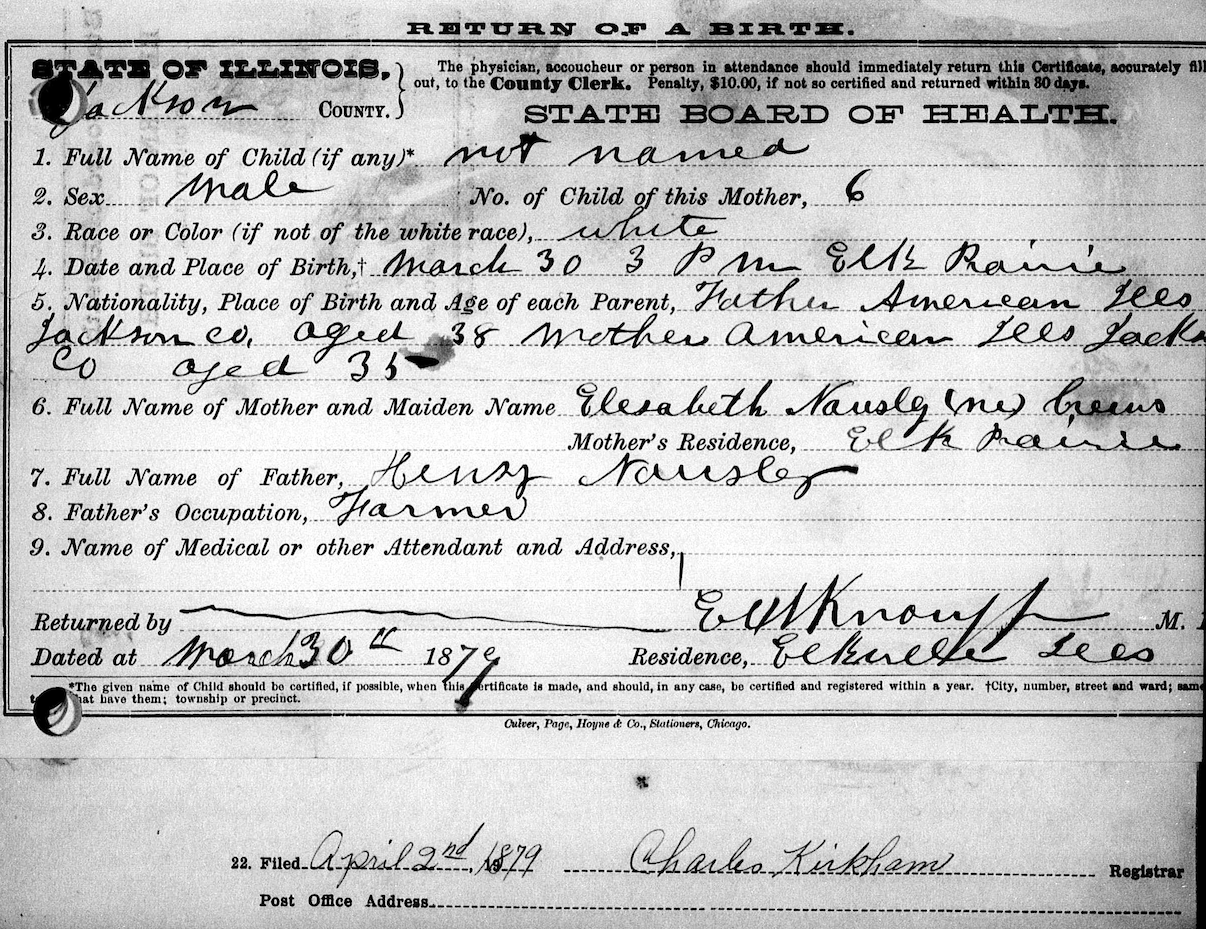 RETURN OF A BIRTH.
STATE OF ILLINOIS,
Jackson COUNTY.
The physician, accoucheur or person in attendance should immediately return this Certificate, accurately fil
out, to the County Clerk. Penalty, $10.00, if not so certified and returned within 30 days.
STATE BOARD OF HEALTH.
1. Full Name of Child (if any)* not named
2. Sex Male No. of Child of this Mother, 6
3. Race or Color (if not of the white race), white
4. Date and Place of Birth,† March 30 3 P m Elk Prairie
5. Nationality, Place of Birth and Age of each Parent, Father American Ills
Jackson Co, aged 38 Mother American Ills Jacks
Co aged 35
6. Full Name of Mother and Maiden Name Elesabeth Nausly (ne) Crews
Mother's Residence, Elk Prairie
7. Full Name of Father, Henry Nausley
8. Father's Occupation, Farmer
9. Name of Medical or other Attendant and Address,
Returned by Knouff M.
Dated at March 30th 1879 Residence, Elkville Ills
*The given name of Child should be certified, if possible, when this Certificate is made, and should, in any case, be certified and registered within a year. †City, number, street and ward; same
hat have them; township or precinct.
Culver, Page, Hoyne & Co., Stationers, Chicago.
22. Filed April 2nd, 1879 Charles Kirkham Registrar
Post Office Address